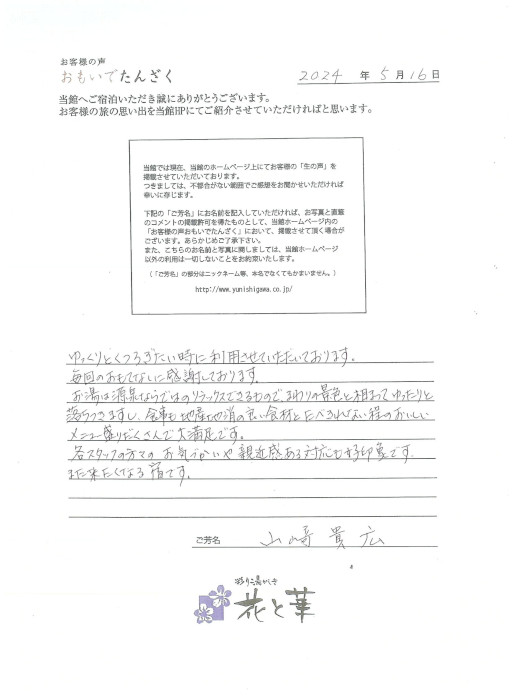 お客様の声
おもいでたんざく
2024 年 5月 16日
当館へご宿泊いただき誠にありがとうございます。
お客様の旅の思い出を当館HPにてご紹介させていただければと思います。
当館では現在、当館のホームページ上にてお客様の「生の声」を
掲載させていただいております。
つきましては、不都合がない範囲でご感想をお聞かせいただければ
幸いに存じます。
下記の「ご芳名」にお名前を記入していただければ、お写真と直筆
のコメントの掲載許可を得たものとして、当館ホームページ内の
「お客様の声おもいでたんざく」において、掲載させて頂く場合が
ございます。あらかじめご了承下さい。
また、こちらのお名前と写真に関しましては、当館ホームページ
以外の利用は一切しないことをお約束いたします。
(「ご芳名」の部分はニックネーム等、本名でなくてもかまいません。)
http://www.yunishigawa.co.jp/
ゆっくりとくつろぎたい時に利用させていただいております。
毎回のおもてなしに感謝しております。
お湯は源泉ならではのリラックスできるもので、まわりの景色と相まってゆったりと
落ちつきますし、食事も地産地消の良い食材とたべきれない程のおいしい
メニュー盛りだくさんで大満足です。
各スタッフの方々の お気づかいや 親近感ある対応も好印象です。
また来たくなる宿です。
ご芳名 山﨑 貴広
彩り湯かしき
花と華